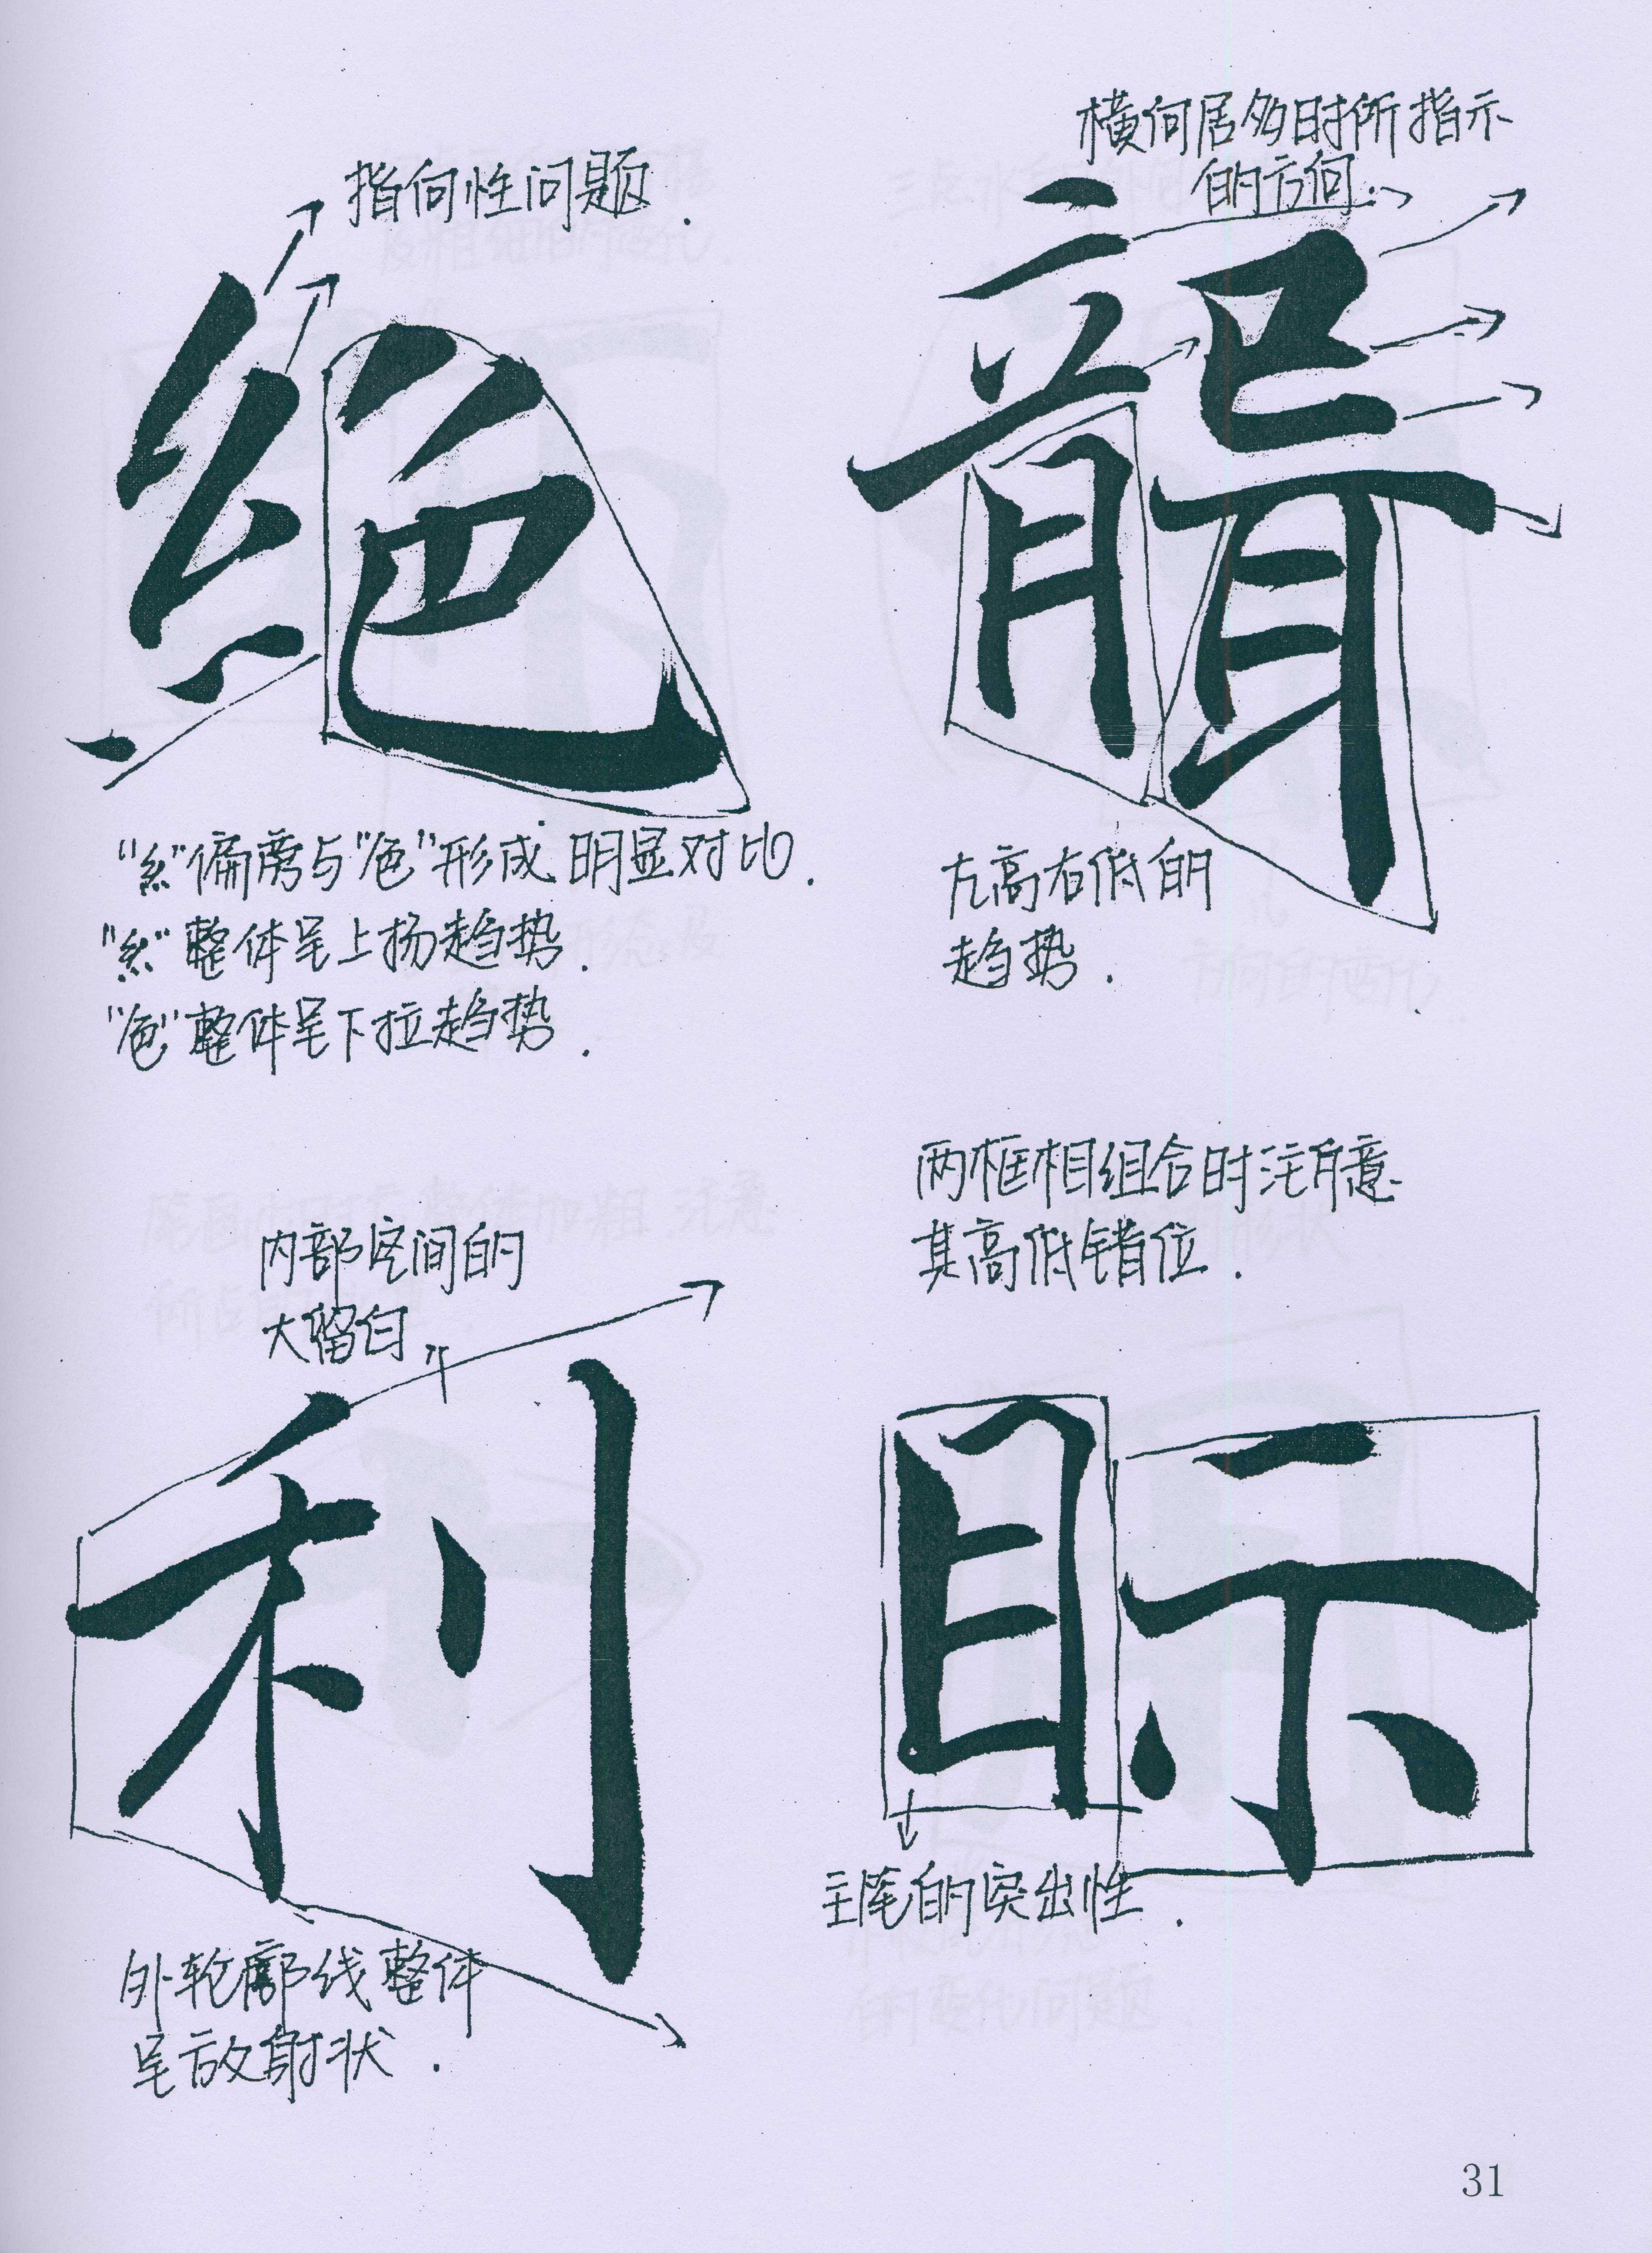 指向性问题.
绝
"糸"偏旁与"色"形成明显对比.
"糸"整体呈上扬趋势.
"色"整体呈下拉趋势.
横向居多时所指示
的方向.
龍
左高右低的
趋势.
内部空间的
大留白
利
外轮廓线整体
呈放射状.
两框相组合时注意
其高低错位.
眎
主尾的突出性.
31